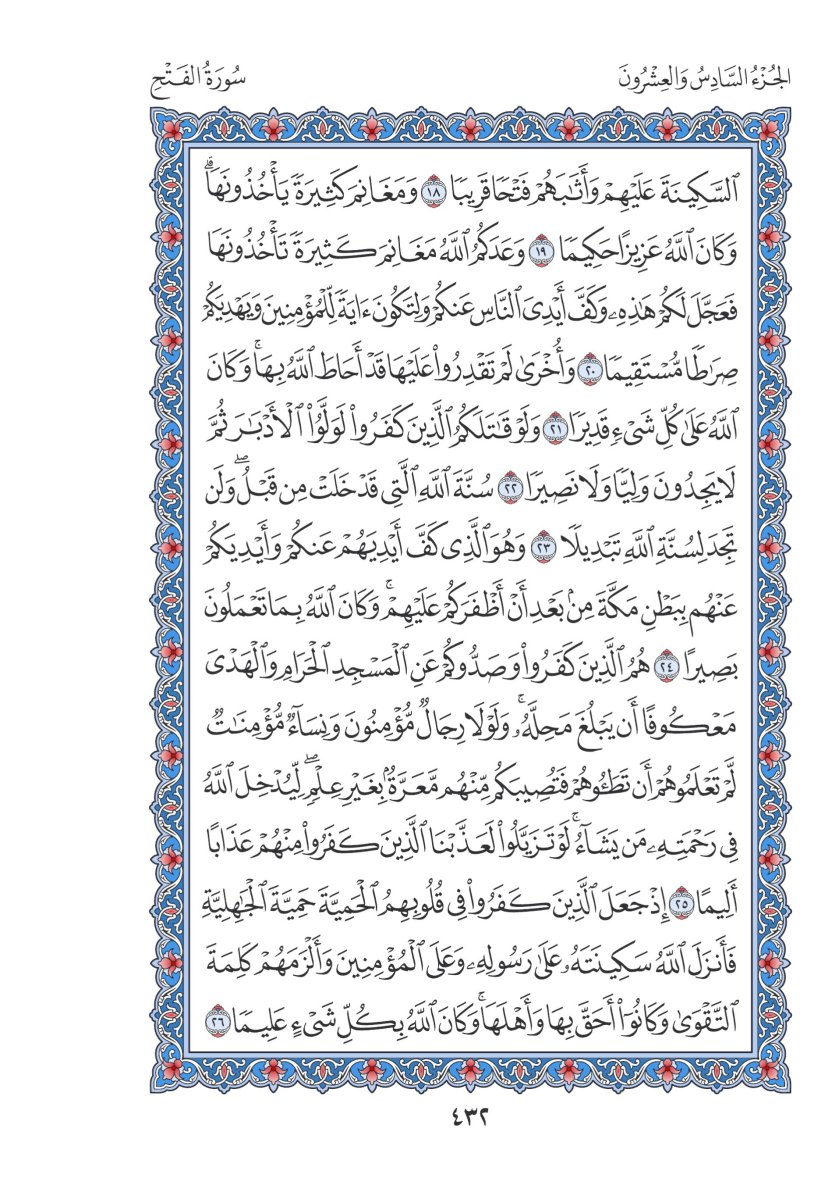 الجُزْءُ السَّادِسُ وَالعِشْرُونَ
سُورَةُ الفَتْحِ
ٱلسَّكِينَةَ عَلَيْهِمْ وَأَثَٰبَهُمْ فَتْحًا قَرِيبًا ١٨ وَمَغَانِمَ كَثِيرَةً يَأْخُذُونَهَاۗ
وَكَانَ ٱللَّهُ عَزِيزًا حَكِيمًا ١٩ وَعَدَكُمُ ٱللَّهُ مَغَانِمَ كَثِيرَةً تَأْخُذُونَهَا
فَعَجَّلَ لَكُمْ هَٰذِهِۦ وَكَفَّ أَيْدِيَ ٱلنَّاسِ عَنكُمْ وَلِتَكُونَ ءَايَةً لِّلْمُؤْمِنِينَ وَيَهْدِيَكُمْ
صِرَٰطًا مُّسْتَقِيمًا ٢٠ وَأُخْرَىٰ لَمْ تَقْدِرُوا۟ عَلَيْهَا قَدْ أَحَاطَ ٱللَّهُ بِهَاۚ وَكَانَ
ٱللَّهُ عَلَىٰ كُلِّ شَيْءٍ قَدِيرًا ٢١ وَلَوْ قَٰتَلَكُمُ ٱلَّذِينَ كَفَرُوا۟ لَوَلَّوُا۟ ٱلْأَدْبَٰرَ ثُمَّ
لَا يَجِدُونَ وَلِيًّا وَلَا نَصِيرًا ٢٢ سُنَّةَ ٱللَّهِ ٱلَّتِي قَدْ خَلَتْ مِن قَبْلُۖ وَلَن
تَجِدَ لِسُنَّةِ ٱللَّهِ تَبْدِيلًا ٢٣ وَهُوَ ٱلَّذِي كَفَّ أَيْدِيَهُمْ عَنكُمْ وَأَيْدِيَكُمْ
عَنْهُم بِبَطْنِ مَكَّةَ مِنۢ بَعْدِ أَنْ أَظْفَرَكُمْ عَلَيْهِمْۚ وَكَانَ ٱللَّهُ بِمَا تَعْمَلُونَ
بَصِيرًا ٢٤ هُمُ ٱلَّذِينَ كَفَرُوا۟ وَصَدُّوكُمْ عَنِ ٱلْمَسْجِدِ ٱلْحَرَامِ وَٱلْهَدْيَ
مَعْكُوفًا أَن يَبْلُغَ مَحِلَّهُۥۚ وَلَوْلَا رِجَالٌ مُّؤْمِنُونَ وَنِسَآءٌ مُّؤْمِنَٰتٌ
لَّمْ تَعْلَمُوهُمْ أَن تَطَـُٔوهُمْ فَتُصِيبَكُم مِّنْهُم مَّعَرَّةٌۢ بِغَيْرِ عِلْمٍۖ لِّيُدْخِلَ ٱللَّهُ
فِي رَحْمَتِهِۦ مَن يَشَآءُۚ لَوْ تَزَيَّلُوا۟ لَعَذَّبْنَا ٱلَّذِينَ كَفَرُوا۟ مِنْهُمْ عَذَابًا
أَلِيمًا ٢٥ إِذْ جَعَلَ ٱلَّذِينَ كَفَرُوا۟ فِي قُلُوبِهِمُ ٱلْحَمِيَّةَ حَمِيَّةَ ٱلْجَٰهِلِيَّةِ
فَأَنزَلَ ٱللَّهُ سَكِينَتَهُۥ عَلَىٰ رَسُولِهِۦ وَعَلَى ٱلْمُؤْمِنِينَ وَأَلْزَمَهُمْ كَلِمَةَ
ٱلتَّقْوَىٰ وَكَانُوٓا۟ أَحَقَّ بِهَا وَأَهْلَهَاۚ وَكَانَ ٱللَّهُ بِكُلِّ شَيْءٍ عَلِيمًا ٢٦
٤٣٢